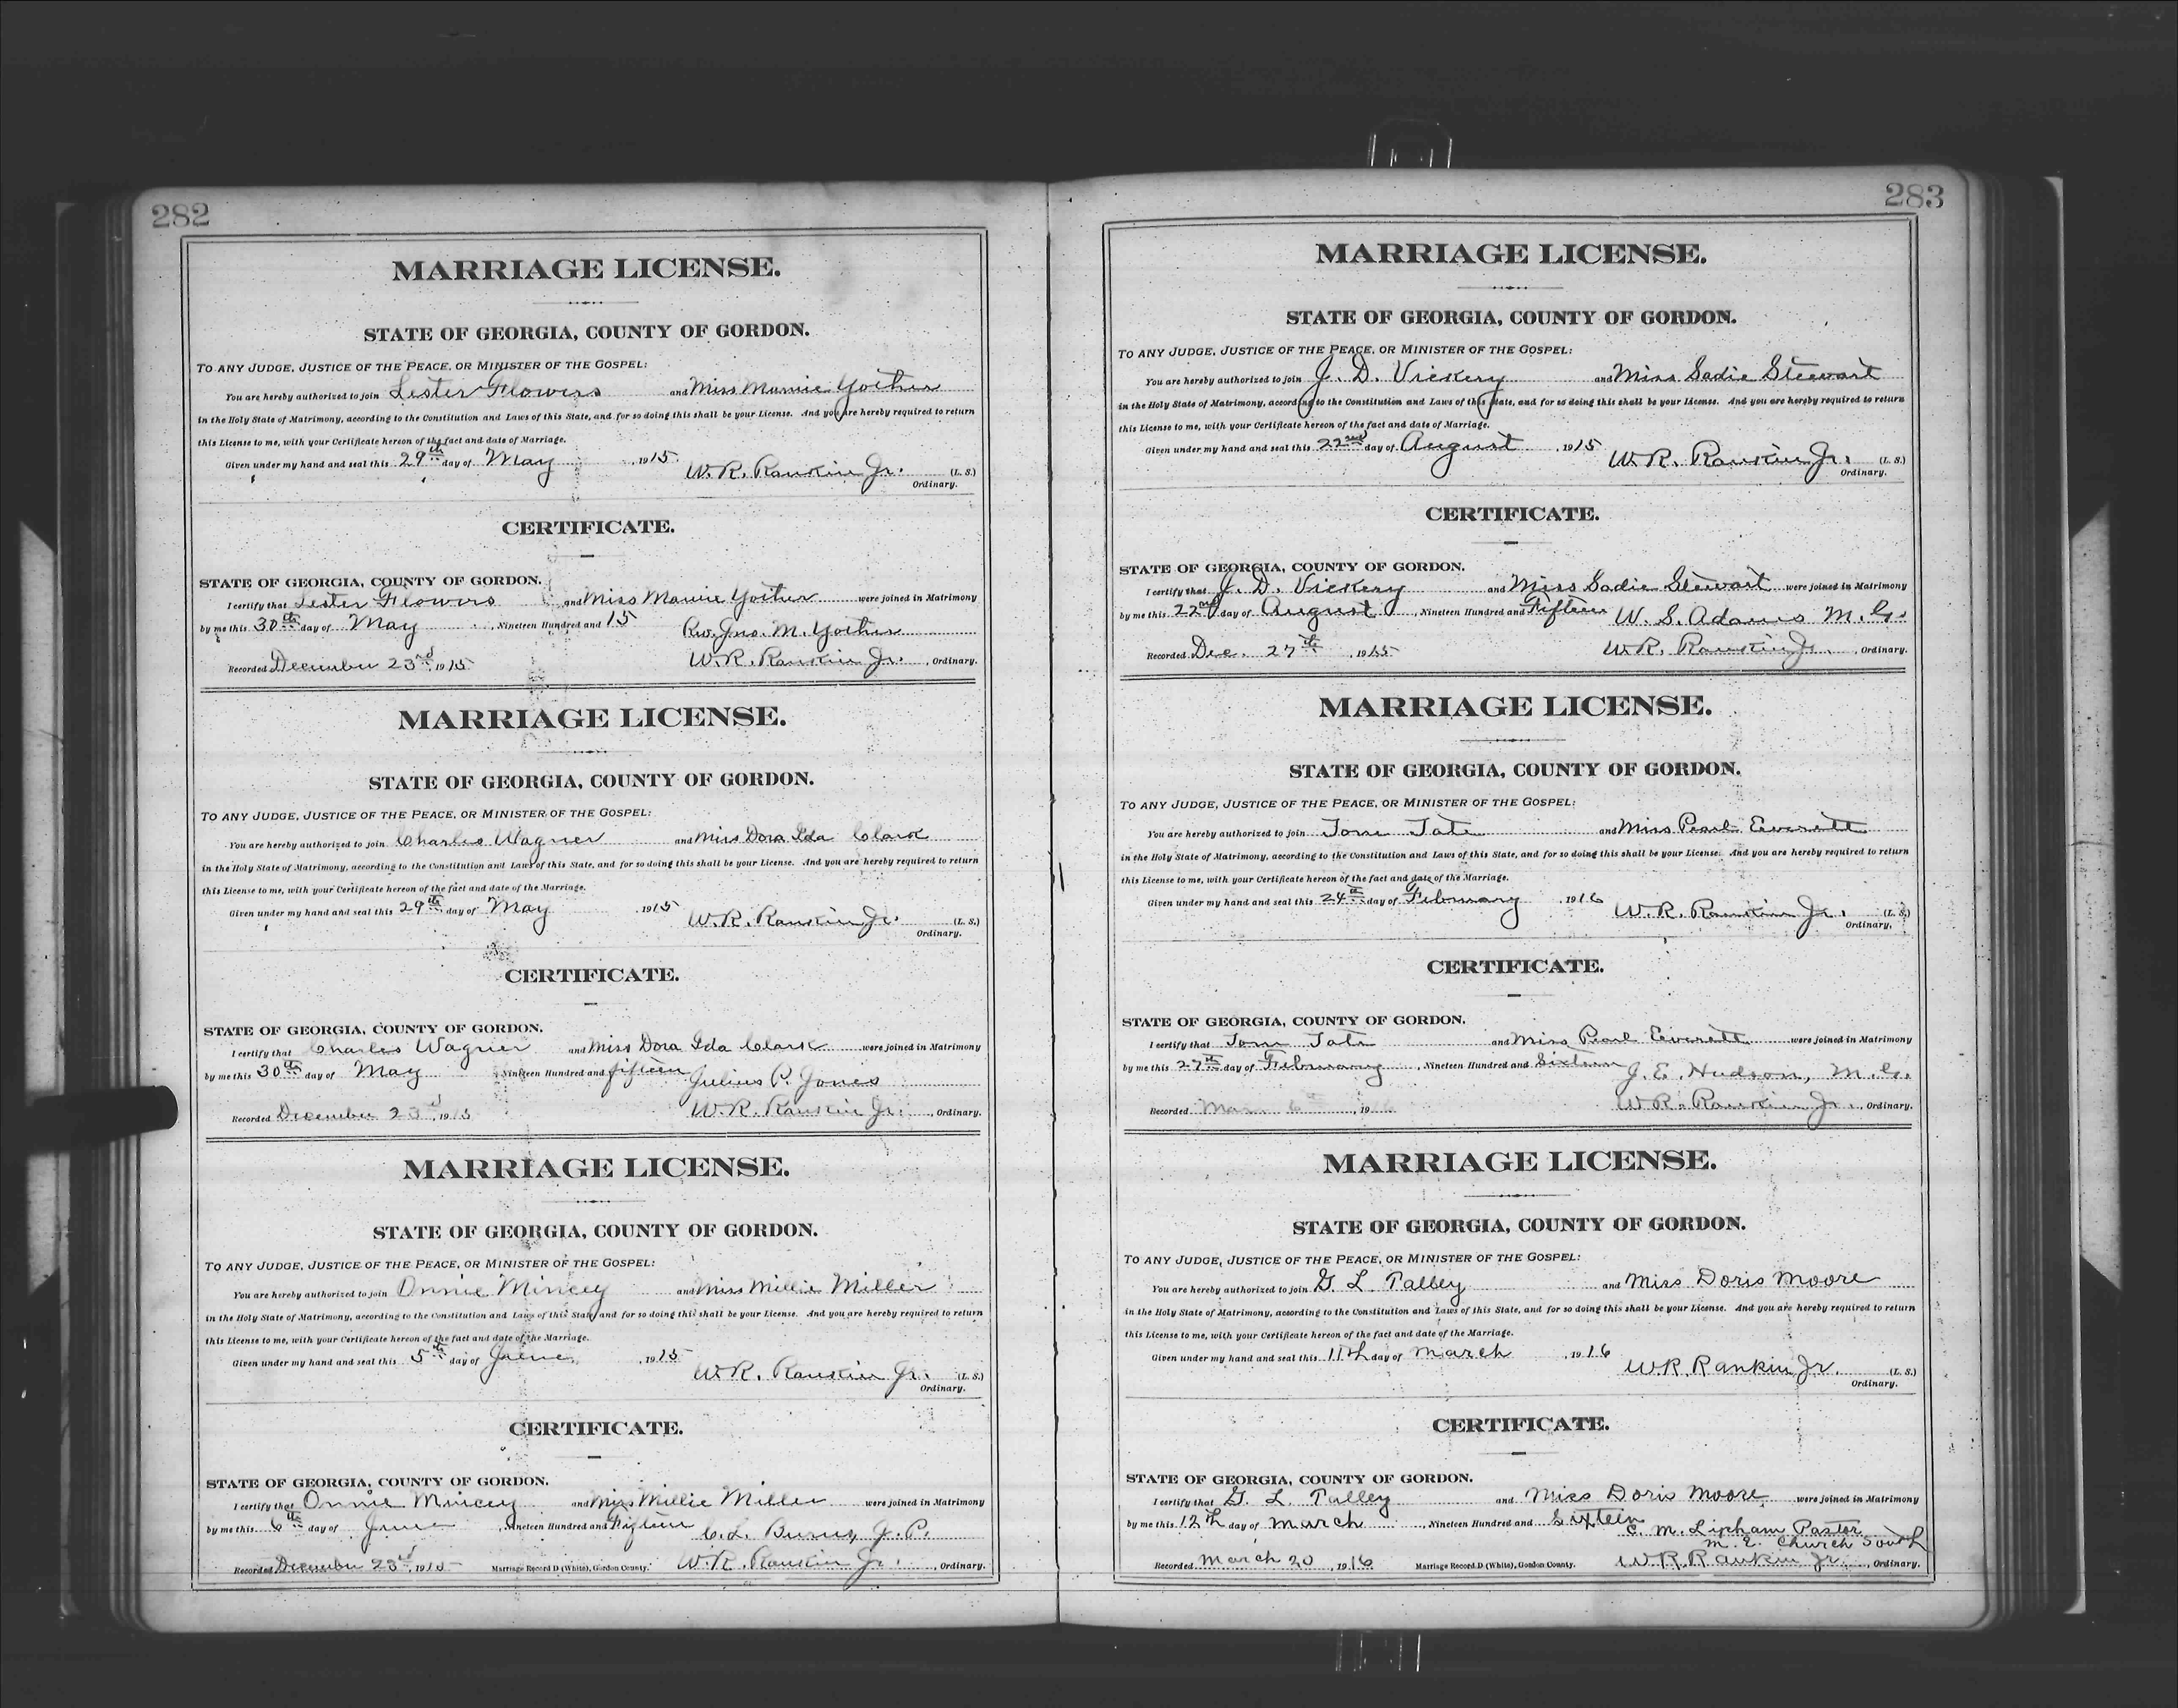 282
MARRIAGE LICENSE.
STATE OF GEORGIA, COUNTY OF GORDON.
TO ANY JUDGE, JUSTICE OF THE PEACE, OR MINISTER OF THE GOSPEL:
You are hereby authorized to join Lester Flowers and Miss Mamie Yother
in the Holy State of Matrimony, according to the Constitution and Laws of this State, and for so doing this shall be your License. And you are hereby required to return
this License to me, with your Certificate hereon of the fact and date of Marriage.
Given under my hand and seal this 29th day of May, 1915.
W. R. Rankin Jr. (L. S.)
Ordinary.
CERTIFICATE.
STATE OF GEORGIA, COUNTY OF GORDON.
I certify that Lester Flowers and Miss Mamie Yother were joined in Matrimony
by me this 30th day of May, Nineteen Hundred and 15 Rev. Jno. M. Yother
Recorded December 23rd, 1915 W. R. Rankin Jr., Ordinary.
MARRIAGE LICENSE.
STATE OF GEORGIA, COUNTY OF GORDON.
TO ANY JUDGE, JUSTICE OF THE PEACE, OR MINISTER OF THE GOSPEL:
You are hereby authorized to join Charles Wagner and Miss Dora Ida Clark
in the Holy State of Matrimony, according to the Constitution and Laws of this State, and for so doing this shall be your License. And you are hereby required to return
this License to me, with your Certificate hereon of the fact and date of the Marriage.
Given under my hand and seal this 29th day of May 1915 W. R. Rankin Jr. (L. S.)
Ordinary.
CERTIFICATE.
STATE OF GEORGIA, COUNTY OF GORDON.
I certify that Charles Wagner and Miss Dora Ida Clark were joined in Matrimony
by me this 30th day of May Nineteen Hundred and fifteen Julius P. Jones
Recorded December 23d, 1915 W. R. Rankin Jr., Ordinary.
MARRIAGE LICENSE.
STATE OF GEORGIA, COUNTY OF GORDON.
TO ANY JUDGE, JUSTICE OF THE PEACE, OR MINISTER OF THE GOSPEL:
You are hereby authorized to join Onnie Mincey and Miss Millie Miller
in the Holy State of Matrimony, according to the Constitution and Laws of this State, and for so doing this shall be your License. And you are hereby required to return
this License to me, with your Certificate hereon of the fact and date of the Marriage.
Given under my hand and seal this 5th day of June, 1915
W. R. Rankin Jr. (L. S.)
Ordinary.
CERTIFICATE.
STATE OF GEORGIA, COUNTY OF GORDON.
I certify that Onnie Mincey and Miss Millie Miller were joined in Matrimony
by me this 6th day of June, Nineteen Hundred and Fifteen C. L. Burns, J. P.
Recorded December 23d, 1915 Marriage Record D (White), Gordon County. W. R. Rankin Jr., Ordinary.
283
MARRIAGE LICENSE.
STATE OF GEORGIA, COUNTY OF GORDON.
TO ANY JUDGE, JUSTICE OF THE PEACE, OR MINISTER OF THE GOSPEL:
You are hereby authorized to join J. D. Vickery and Miss Sadie Stewart
in the Holy State of Matrimony, according to the Constitution and Laws of this State, and for so doing this shall be your License. And you are hereby required to return
this License to me, with your Certificate hereon of the fact and date of Marriage.
Given under my hand and seal this 22nd day of August, 1915 W. R. Rankin Jr. (L. S.)
Ordinary.
CERTIFICATE.
STATE OF GEORGIA, COUNTY OF GORDON.
I certify that J. D. Vickery and Miss Sadie Stewart were joined in Matrimony
by me this 22nd day of August, Nineteen Hundred and Fifteen W. S. Adams M. G.
Recorded Dec. 27th, 1915 W. R. Rankin Jr., Ordinary.
MARRIAGE LICENSE.
STATE OF GEORGIA, COUNTY OF GORDON.
TO ANY JUDGE, JUSTICE OF THE PEACE, OR MINISTER OF THE GOSPEL:
You are hereby authorized to join Tom Tate and Miss Pearl Everett
in the Holy State of Matrimony, according to the Constitution and Laws of this State, and for so doing this shall be your License. And you are hereby required to return
this License to me, with your Certificate hereon of the fact and date of the Marriage.
Given under my hand and seal this 24th day of February, 1916 W. R. Rankin Jr. (L. S.)
Ordinary.
CERTIFICATE.
STATE OF GEORGIA, COUNTY OF GORDON.
I certify that Tom Tate and Miss Pearl Everett were joined in Matrimony
by me this 27th day of February, Nineteen Hundred and Sixteen J. E. Hudson, M. G.
Recorded Mar. 6th, 1916 W. R. Rankin Jr., Ordinary.
MARRIAGE LICENSE.
STATE OF GEORGIA, COUNTY OF GORDON.
TO ANY JUDGE, JUSTICE OF THE PEACE, OR MINISTER OF THE GOSPEL:
You are hereby authorized to join G. L. Talley and Miss Doris Moore
in the Holy State of Matrimony, according to the Constitution and Laws of this State, and for so doing this shall be your License. And you are hereby required to return
this License to me, with your Certificate hereon of the fact and date of the Marriage.
Given under my hand and seal this 11th day of March, 1916
W. R. Rankin Jr. (L. S.)
Ordinary.
CERTIFICATE.
STATE OF GEORGIA, COUNTY OF GORDON.
I certify that G. L. Talley and Miss Doris Moore were joined in Matrimony
by me this 12th day of March, Nineteen Hundred and Sixteen C. M. Lipham Pastor
M. E. Church South
Recorded March 20, 1916 Marriage Record D (White), Gordon County. W. R. Rankin Jr., Ordinary.